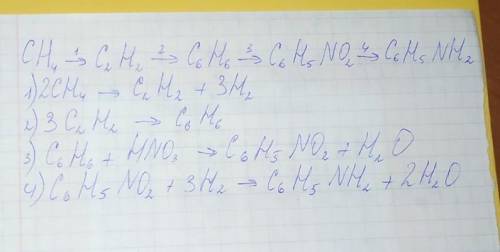 CH₄ →¹ C₂H₂ →² C₆H₆ →³ C₆H₅NO₂ →⁴ C₆H₅NH₂
1) 2CH₄ → C₂H₂ + 3H₂
2) 3C₂H₂ → C₆H₆
3) C₆H₆ + HNO₃ → C₆H₅NO₂ + H₂O
4) C₆H₅NO₂ + 3H₂ → C₆H₅NH₂ + 2H₂O